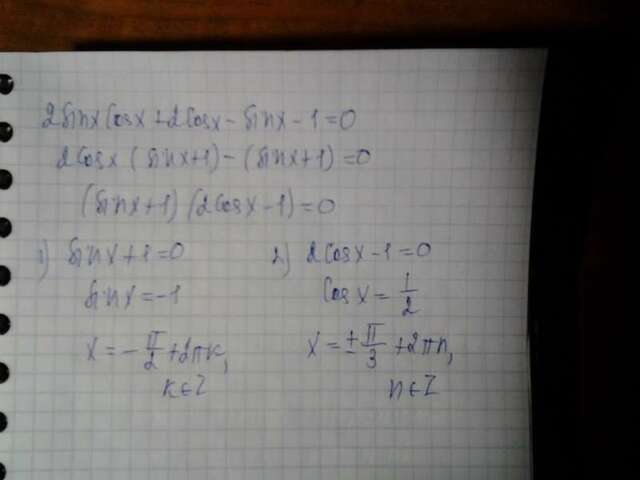 2sinxcosx+2cosx-sinx-1=0
2cosx(sinx+1)-(sinx+1)=0
(sinx+1)(2cosx-1)=0
1) sinx+1=0
sinx=-1
x=-π/2+2πk,
k∈Z
2) 2cosx-1=0
cosx=1/2
x=±π/3+2πn,
n∈Z